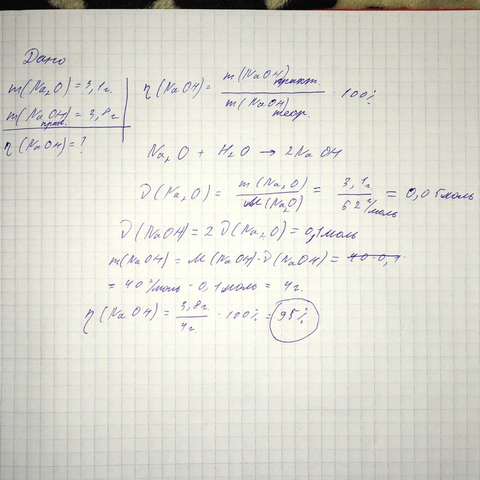 Дано
m(Na₂O) = 3,1г.
m(NaOH)практ. = 3,8г
η(NaOH) = ?
η(NaOH) = m(NaOH)практ. / m(NaOH)теор. · 100%
Na₂O + H₂O → 2NaOH
ν(Na₂O) = m(Na₂O) / M(Na₂O) = 3,1г / 62 г/моль = 0,05моль
ν(NaOH) = 2ν(Na₂O) = 0,1моль
m(NaOH) = M(NaOH)·ν(NaOH) =
= 40 г/моль · 0,1моль = 4г.
η(NaOH) = 3,8г / 4г · 100% = 95%